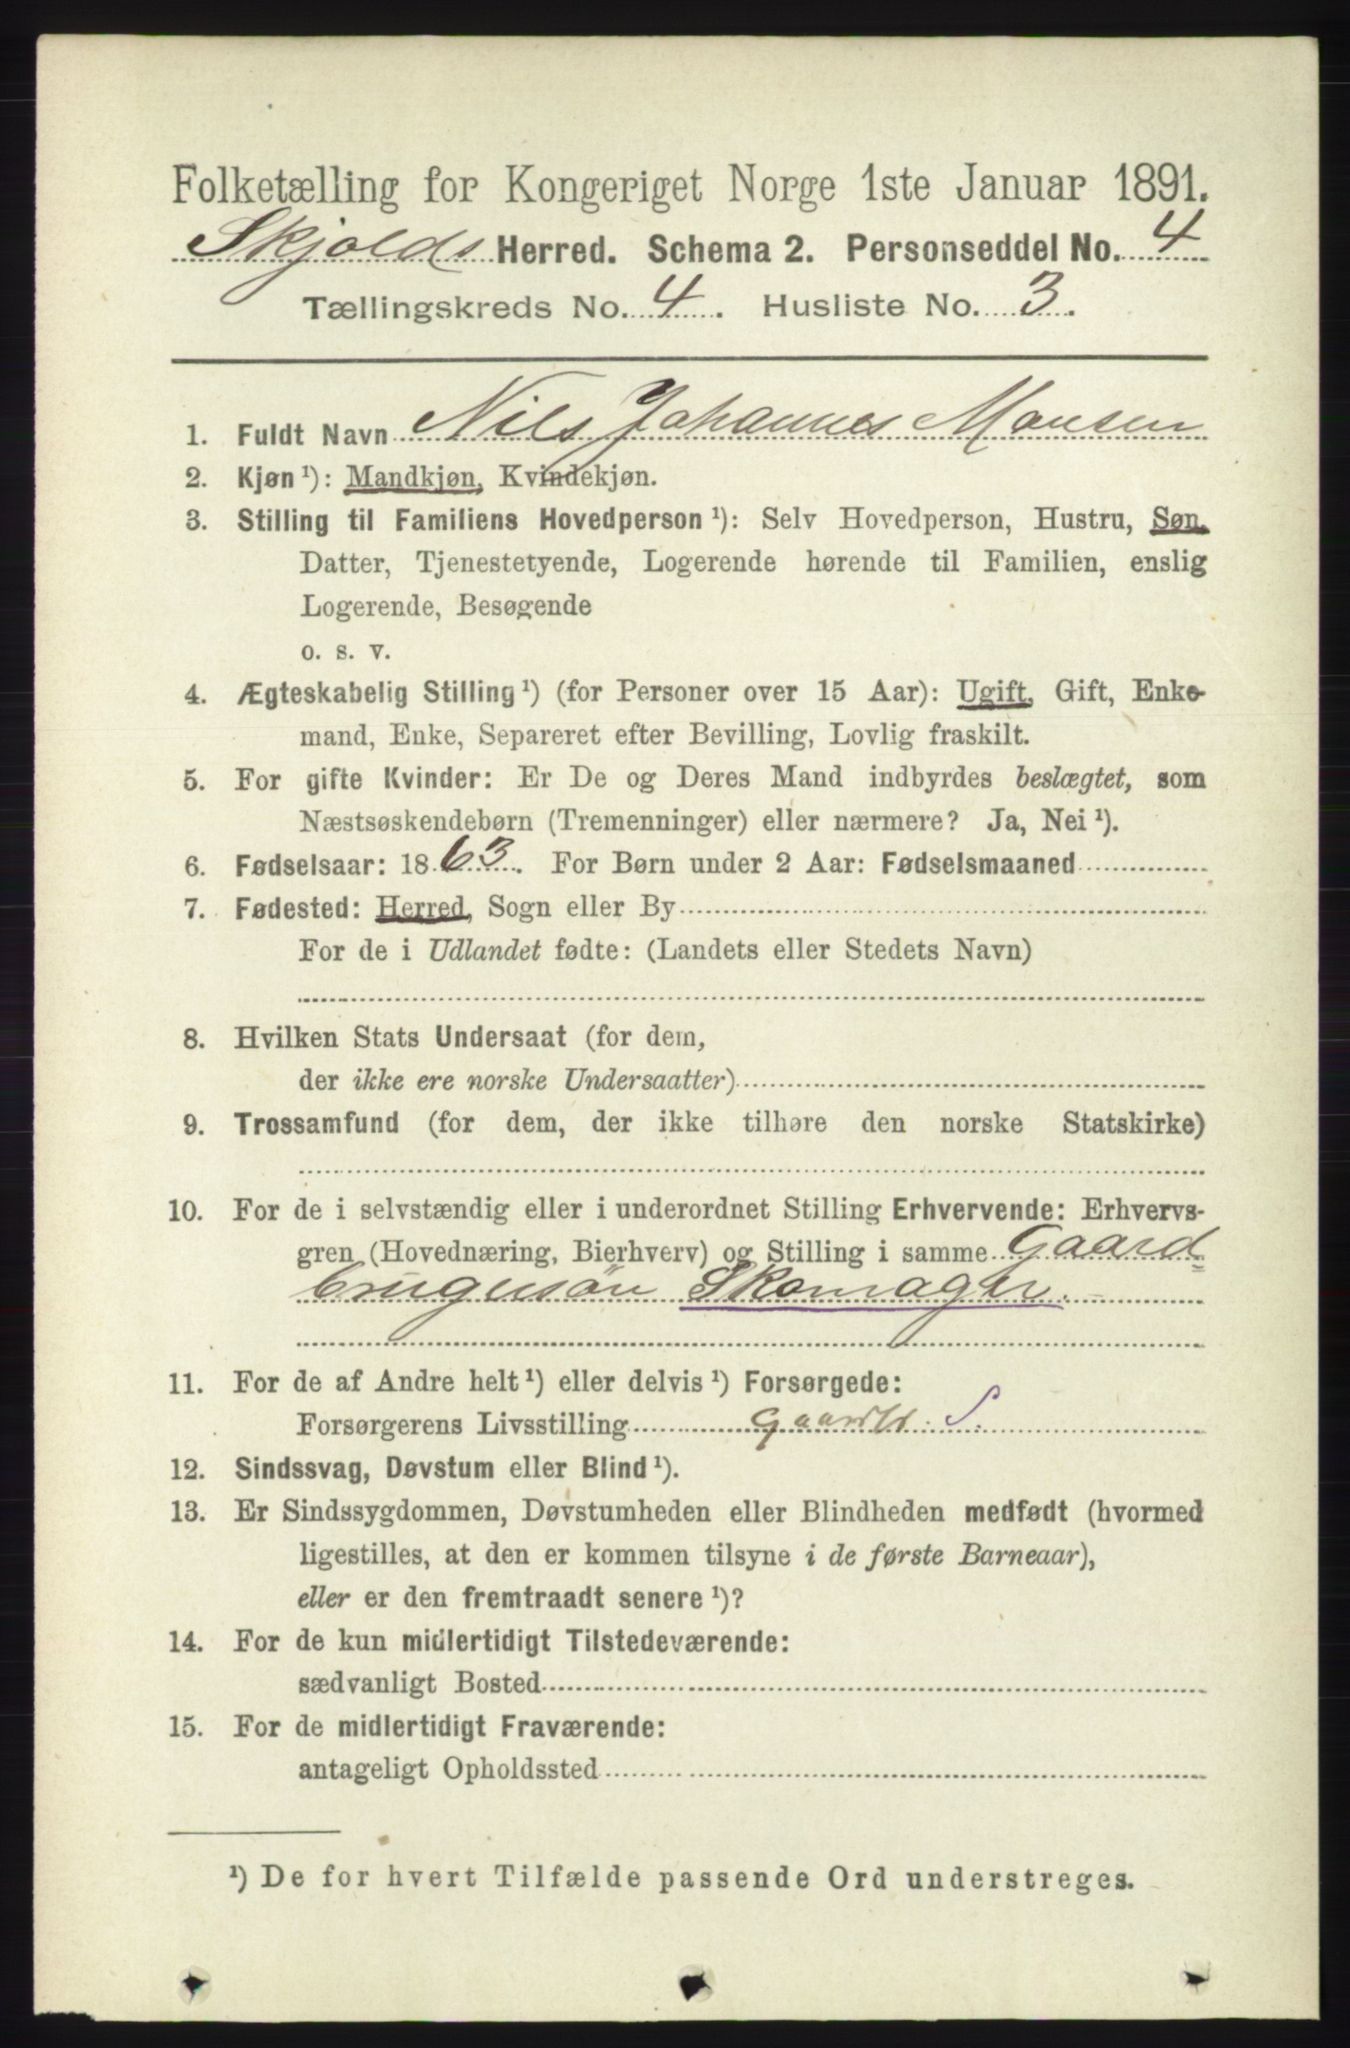 Folketælling for Kongeriget Norge 1ste Januar 1891.
Skjolds Herred. Schema 2. Personseddel No. 4
Tællingskreds No. 4. Husliste No. 3.
1. Fuldt Navn Nils Johannes Monsen
2. Kjøn ¹): Mandkjøn, Kvindekjøn.
3. Stilling til Familiens Hovedperson ¹): Selv Hovedperson, Hustru, Søn,
Datter, Tjenestetyende, Logerende hørende til Familien, enslig
Logerende, Besøgende
o. s. v.
4. Ægteskabelig Stilling ¹) (for Personer over 15 Aar): Ugift, Gift, Enke-
mand, Enke, Separeret efter Bevilling, Lovlig fraskilt.
5. For gifte Kvinder: Er De og Deres Mand indbyrdes beslægtet, som
Næstsøskendebørn (Tremenninger) eller nærmere? Ja, Nei ¹).
6. Fødselsaar: 1863. For Børn under 2 Aar: Fødselsmaaned
7. Fødested: Herred, Sogn eller By
For de i Udlandet fødte: (Landets eller Stedets Navn)
8. Hvilken Stats Undersaat (for dem,
der ikke ere norske Undersaatter)
9. Trossamfund (for dem, der ikke tilhøre den norske Statskirke)
10. For de i selvstændig eller i underordnet Stilling Erhvervende: Erhvervs-
gren (Hovednæring, Bierhverv) og Stilling i samme Gaard
brugersøn Skomager.
11. For de af Andre helt ¹) eller delvis ¹) Forsørgede:
Forsørgerens Livsstilling Gaardbr. S.
12. Sindssvag, Døvstum eller Blind ¹).
13. Er Sindssygdommen, Døvstumheden eller Blindheden medfødt (hvormed
ligestilles, at den er kommen tilsyne i de første Barneaar),
eller er den fremtraadt senere ¹)?
14. For de kun midlertidigt Tilstedeværende:
sædvanligt Bosted
15. For de midlertidigt Fraværende:
antageligt Opholdssted
¹) De for hvert Tilfælde passende Ord understreges.